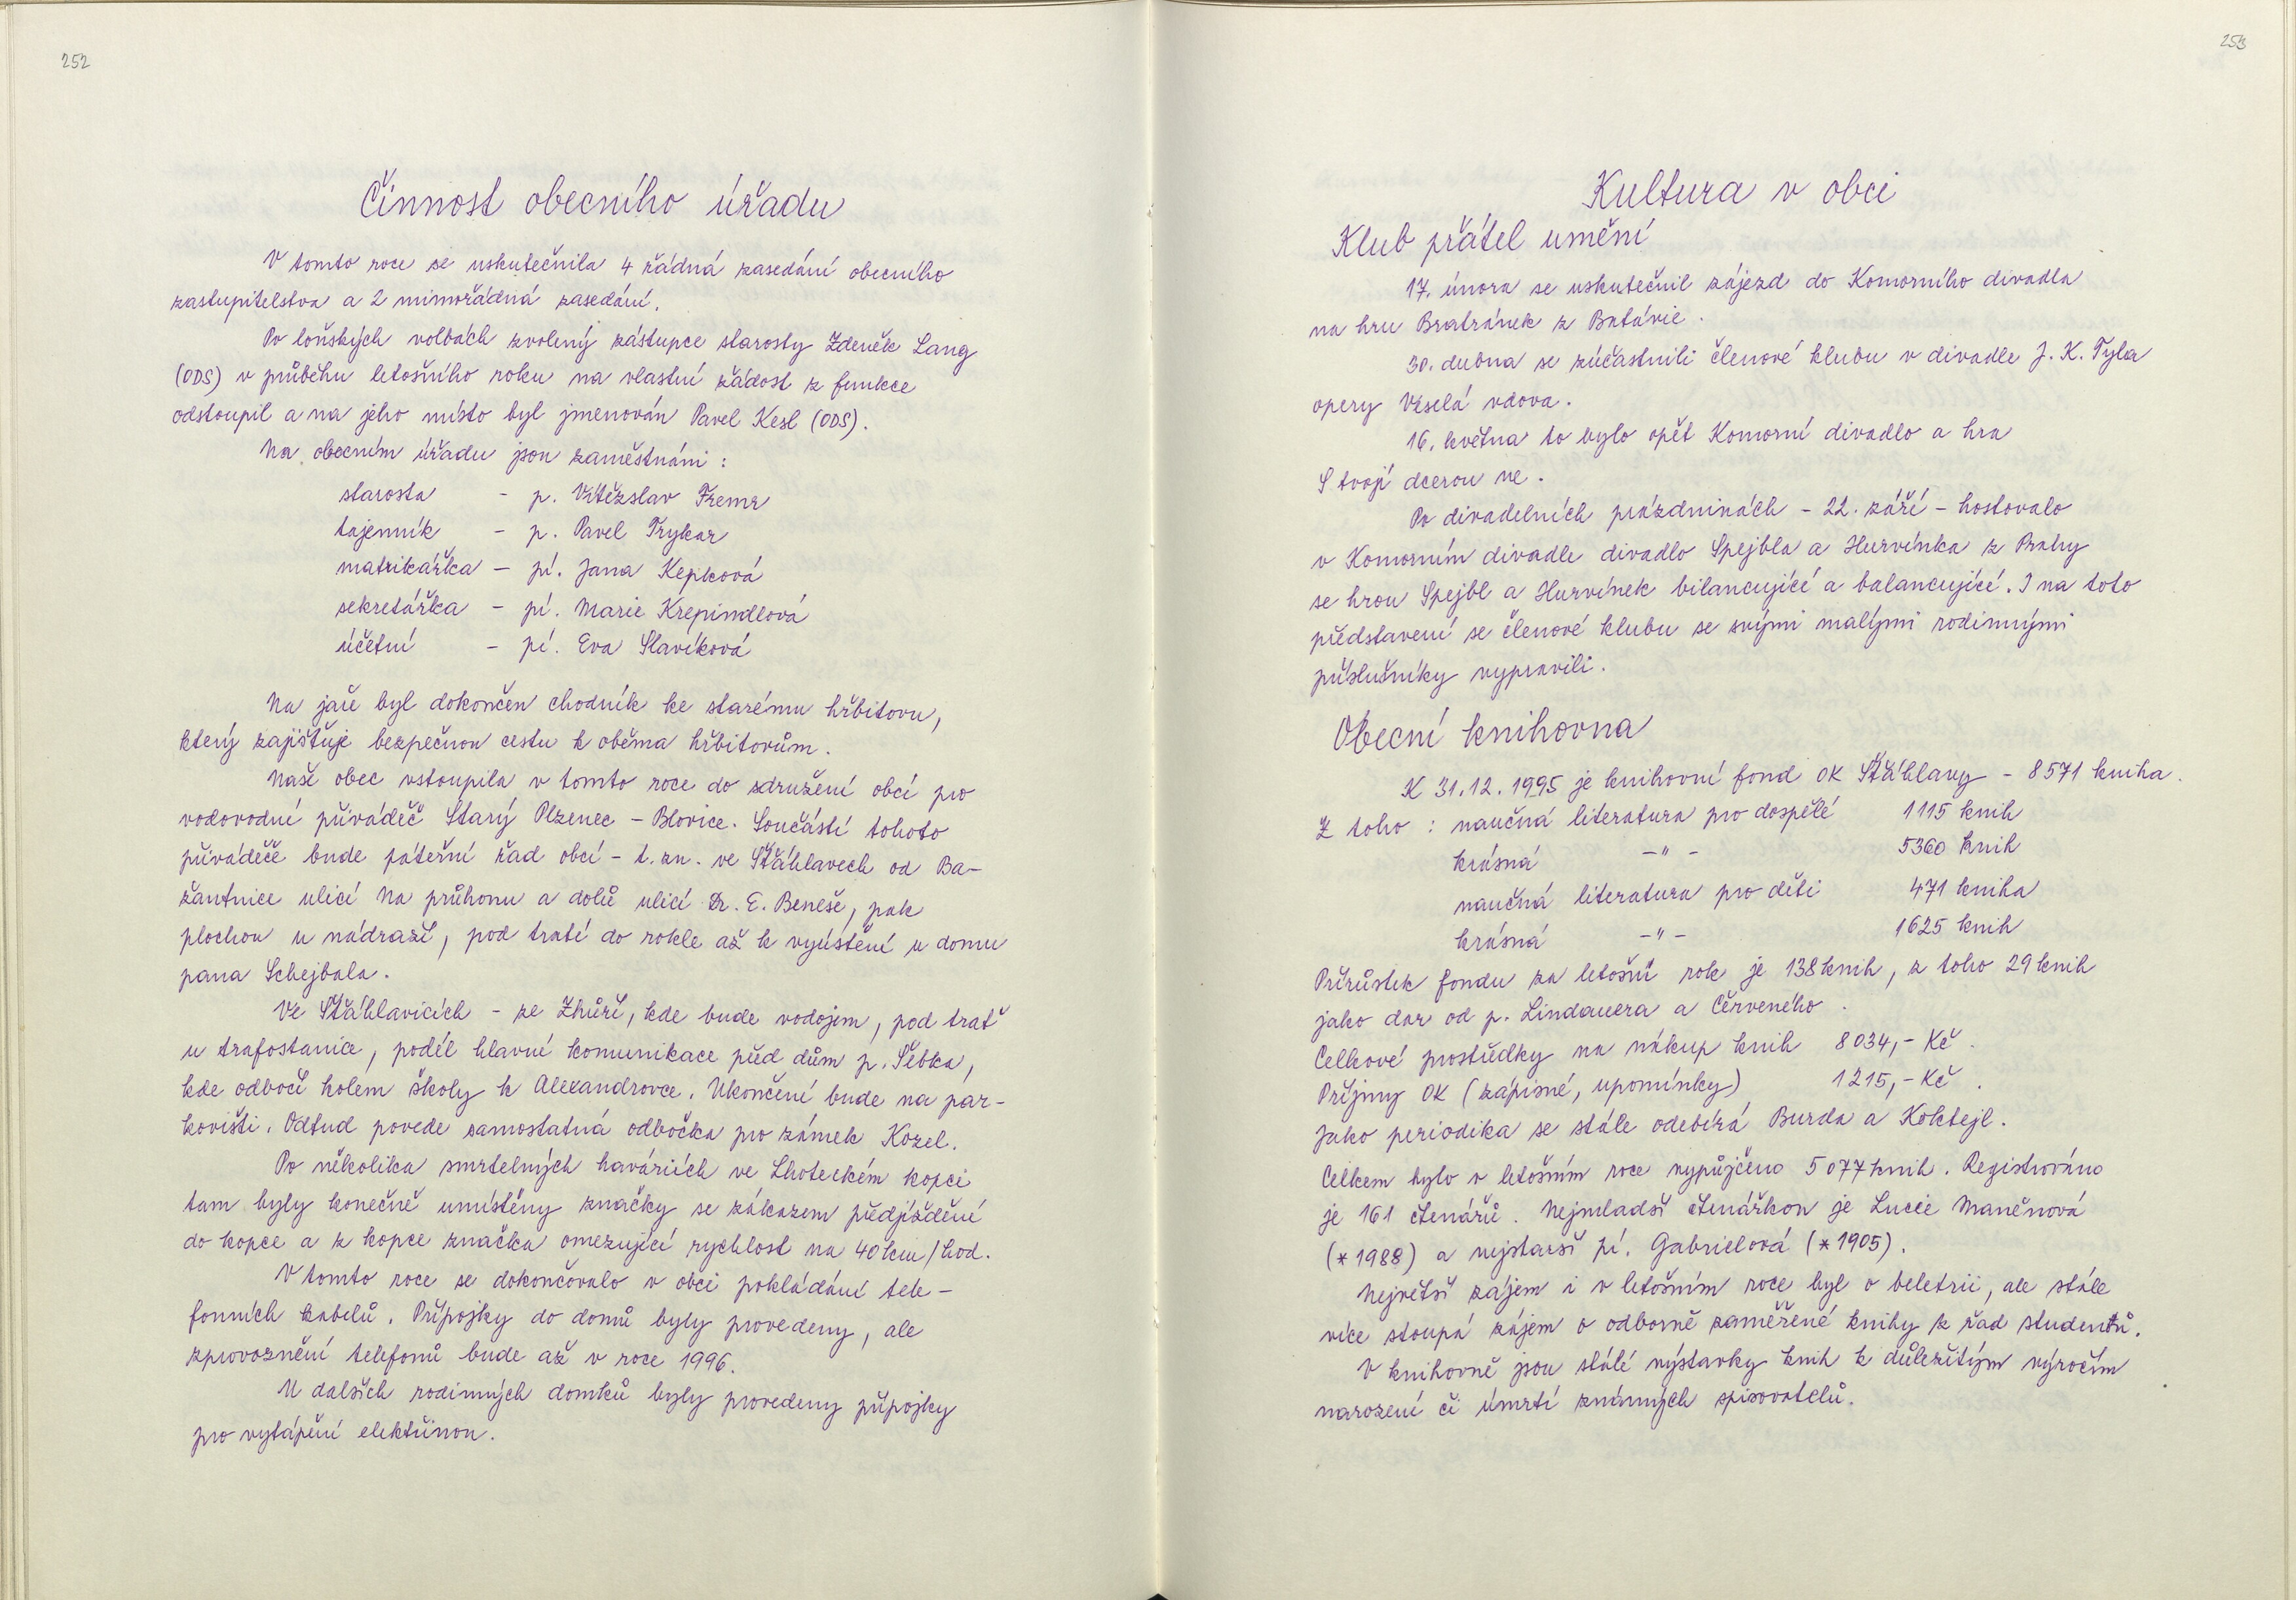 252
Činnost obecního úřadu
V tomto roce se uskutečnila 4 řádná zasedání obecního
zastupitelstva a 2 mimořádná zasedání.
Po loňských volbách zvolený zástupce starosty Zdeněk Lang
(ODS) v průběhu letošního roku na vlastní žádost z funkce
odstoupil a na jeho místo byl jmenován Pavel Kesl (ODS).
Na obecním úřadu jsou zaměstnáni :
starosta - p. Vítězslav Fremr
tajemník - p. Pavel Trykar
matrikářka - pí. Jana Kepková
sekretářka - pí. Marie Krepindlová
účetní - pí. Eva Slavíková
Na jaře byl dokončen chodník ke starému hřbitovu,
který zajišťuje bezpečnou cestu k oběma hřbitovům.
Naše obec vstoupila v tomto roce do sdružení obcí pro
vodovodní přivaděč Starý Plzenec - Blovice. Součástí tohoto
přivaděče bude páteřní řad obcí - t.zn. ve Šťáhlavech od Ba-
žantnice ulicí Na průhonu a dolů ulicí Dr. E. Beneše, pak
plochou u nádraží, pod tratí do rokle až k vyústění u domu
pana Schejbala.
Ve Šťáhlavicích - ze Zhůří, kde bude vodojem, pod trať
u trafostanice, podél hlavní komunikace před dům p. Šebka,
kde odbočí kolem školy k Alexandrovce. Ukončení bude na par-
kovišti. Odtud povede samostatná odbočka pro zámek Kozel.
Po několika smrtelných haváriích ve Lhoteckém kopci
tam byly konečně umístěny značky se zákazem předjíždění
do kopce a z kopce značka omezující rychlost na 40 km/hod.
V tomto roce se dokončovalo v obci pokládání tele-
fonních kabelů. Přípojky do domů byly provedeny, ale
zprovoznění telefonů bude až v roce 1996.
U dalších rodinných domků byly provedeny přípojky
pro vytápění elektřinou.
253
Kultura v obci
Klub přátel umění
17. února se uskutečnil zájezd do Komorního divadla
na hru Bratránek z Batávie.
30. dubna se zúčastnili členové klubu v divadle J. K. Tyla
opery Veselá vdova.
16. května to bylo opět Komorní divadlo a hra
S tvojí dcerou ne.
Po divadelních prázdninách - 22. září - hostovalo
v Komorním divadle divadlo Spejbla a Hurvínka z Prahy
se hrou Spejbl a Hurvínek bilancující a balancující. I na toto
představení se členové klubu se svými malými rodinnými
příslušníky vypravili.
Obecní knihovna
K 31.12.1995 je knihovní fond OK Šťáhlavy - 8571 kniha.
Z toho : naučná literatura pro dospělé 1115 knih
krásná -"- 5360 knih
naučná literatura pro děti 471 kniha
krásná -"- 1625 knih
Přírůstek fondu za letošní rok je 138 knih, z toho 29 knih
jako dar od p. Lindauera a Červeného.
Celkové prostředky na nákup knih 8034,- Kč.
Příjmy OK (zápisné, upomínky) 1215,- Kč.
Jako periodika se stále odebírá Burda a Koktejl.
Celkem bylo v letošním roce vypůjčeno 5077 knih. Registrováno
je 161 čtenářů. Nejmladší čtenářkou je Lucie Maněnová
(*1988) a nejstarší pí. Gabrielová (*1905).
Největší zájem i v letošním roce byl o beletrii, ale stále
více stoupá zájem o odborně zaměřené knihy z řad studentů.
V knihovně jsou stálé výstavky knih k důležitým výročím
narození či úmrtí známých spisovatelů.